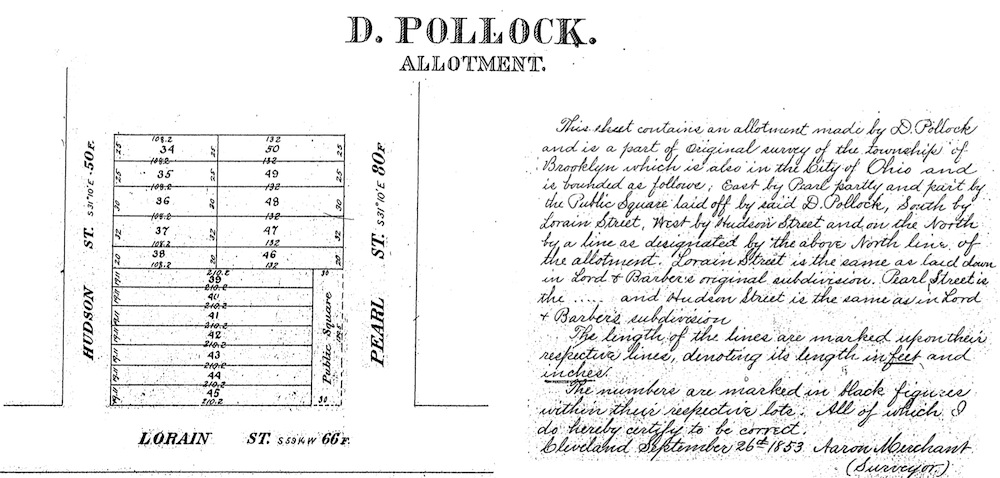 D. POLLOCK.
ALLOTMENT.
HUDSON ST. S 31°10' E 50F.
108.2 132
25 34 25 50 25
108.2 132
25 35 25 49 25
108.2 132
30 36 30 48 30
108.2 132
32 37 32 47 32
108.2 132
20 38 20 46 20
108.2 132
210.2
19.11 39
210.2
19.11 40
210.2
19.11 41
210.2
19.11 42
210.2
19.11 43
210.2
19.11 44
210.2
19.11 45
210.2
30
Public Square
30
PEARL ST. S 31°10' E 80F.
LORAIN ST. S 59¼ W 66F.
This sheet contains an allotment made by D. Pollock
and is a part of Original survey of the township of
Brooklyn which is also in the City of Ohio and
is bounded as follows; East by Pearl partly and part by
the Public Square laid off by said D. Pollock, South by
Lorain Street, West by Hudson Street and on the North
by a line as designated by the above North line of
the allotment. Lorain Street is the same as laid down
in Lord & Barber's original subdivision. Pearl Street is
the ..... and Hudson Street is the same as in Lord
& Barber's subdivision
The length of the lines are marked upon their
respective lines, denoting its length in feet and
inches.
The numbers are marked in black figures
within their respective lots. All of which I
do hereby certify to be correct.
Cleveland September 26th 1853 Aaron Merchant
(Surveyor.)